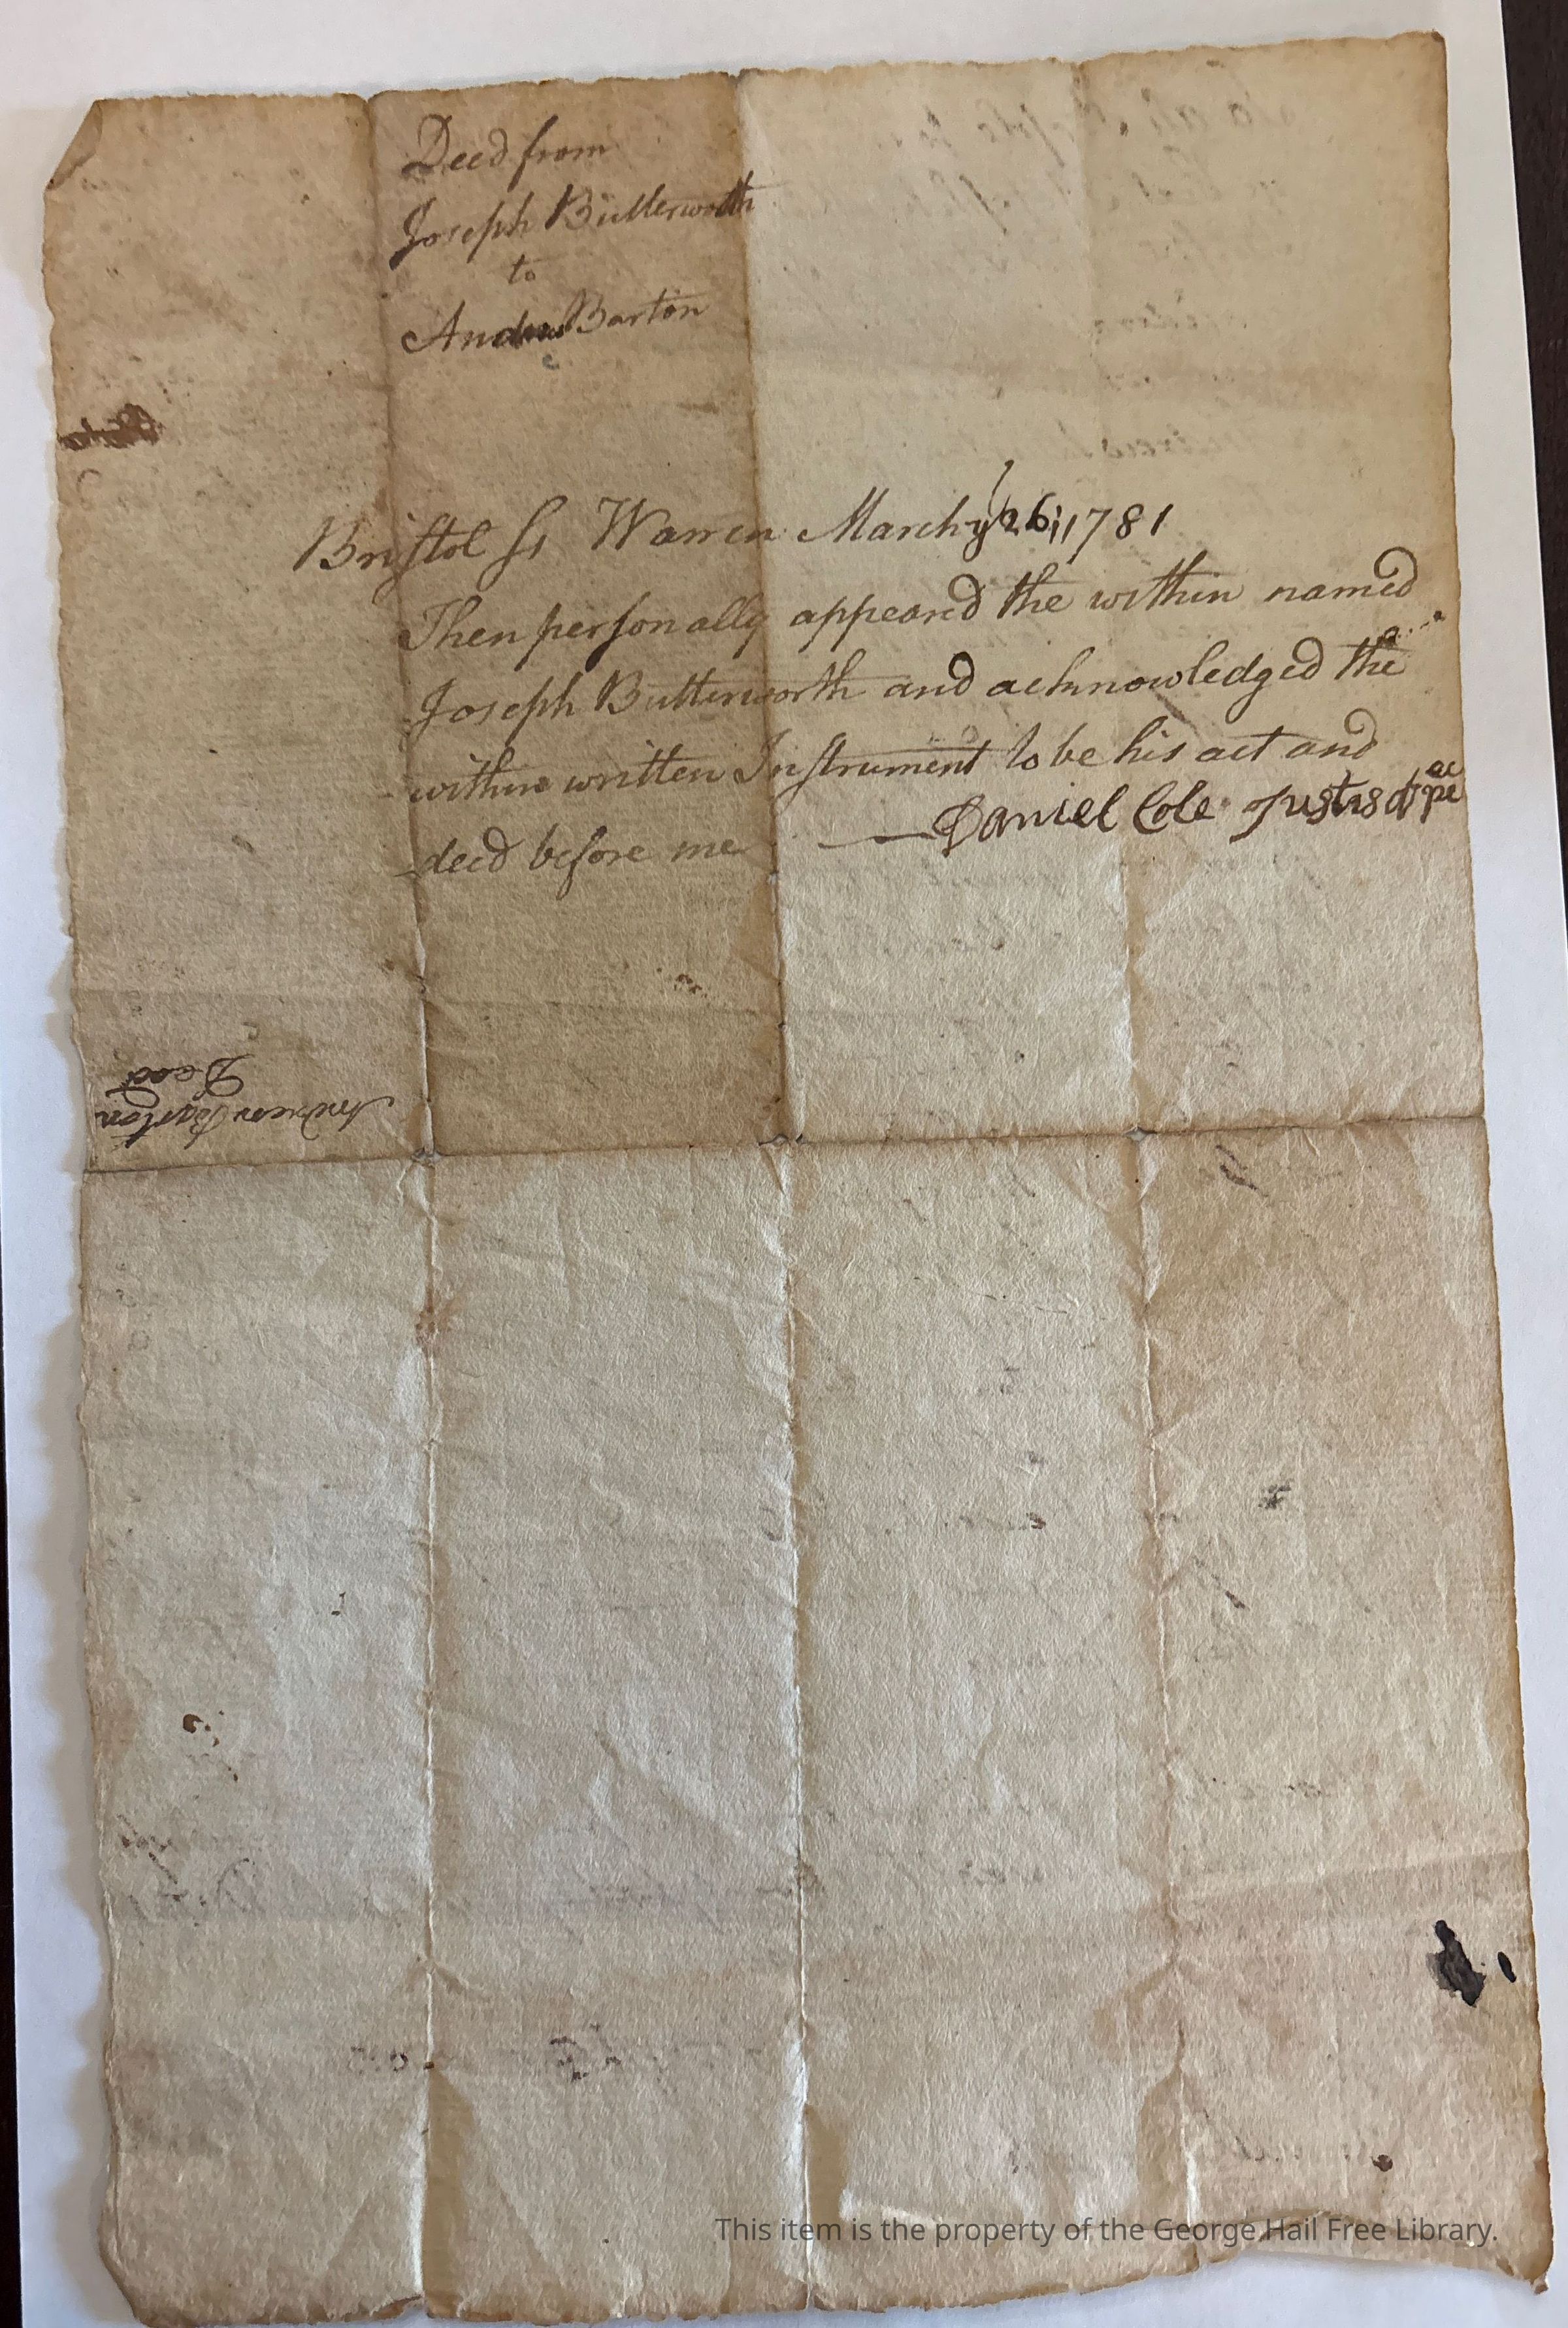 Deed from
Joseph Butterworth
to
Andrew Barton
Bristol Ss Warren March ye 26; 1781
Then personally appeared the within named
Joseph Butterworth and acknowledged the
within written Instrument to be his act and
deed before me — Daniel Cole Justis of peac
Andrew Barton
Deed
This item is the property of the George Hail Free Library.